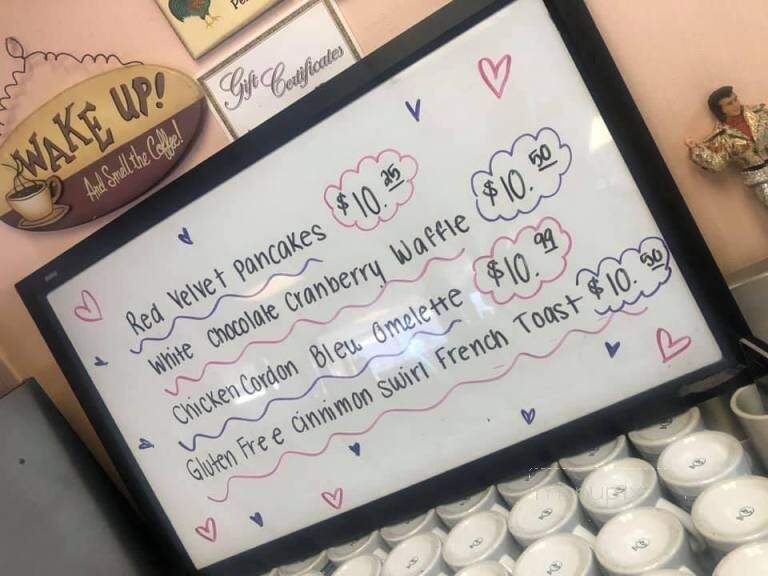 Pe
Gift Certificates
WAKE UP!
And Smell the Coffee!
Red Velvet Pancakes $10.25
White Chocolate Cranberry Waffle $10.50
Chicken Cordon Bleu Omelette $10.99
Gluten Free Cinnimon Swirl French Toast $10.50